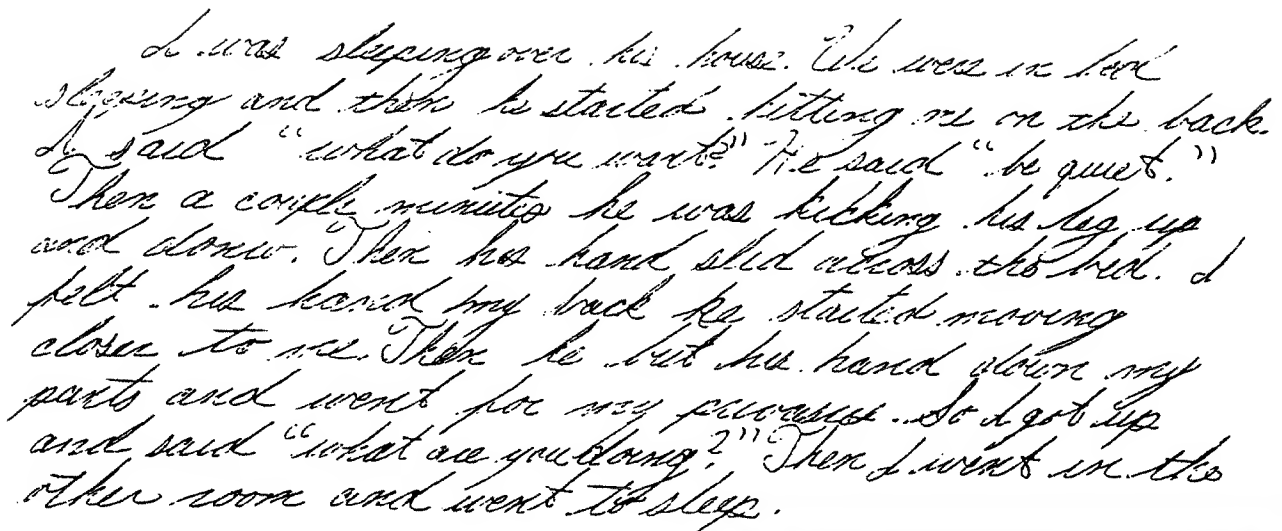 I was sleeping over his house. We were in bed
sleeping and then he started hitting me on the back.
I said "what do you want?" He said "be quiet."
Then a couple minutes he was kicking his leg up
and donw. Then his hand slid across the bed. I
felt his hand my back he started moving
closer to me. Then he but his hand down my
pants and went for my privates. So I got up
and said "what are you doing?" Then I went in the
other room and went to sleep.